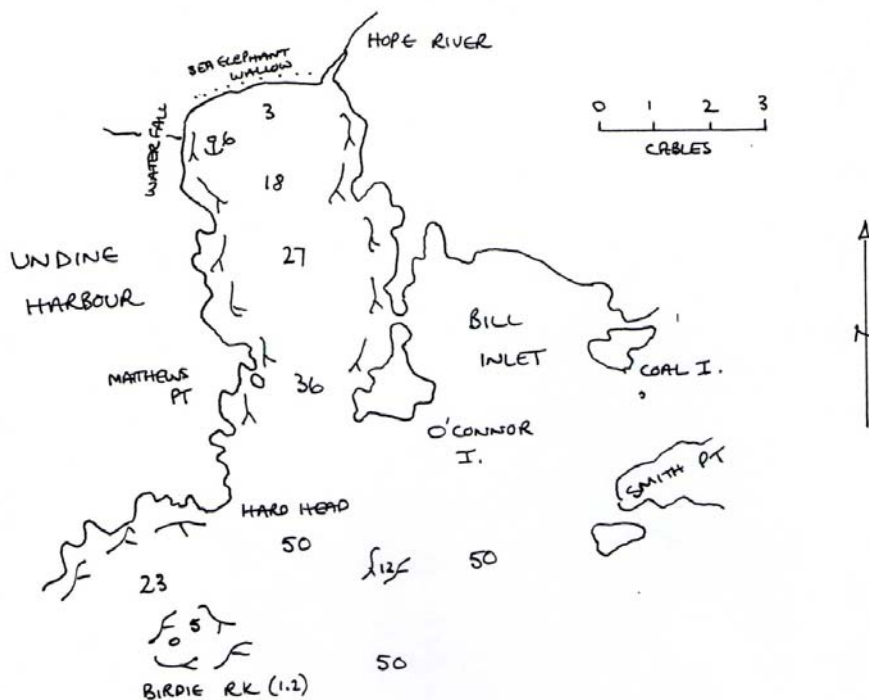 HOPE RIVER
SEA ELEPHANT
WALLOW
0 1 2 3
CABLES
3
WATER FALL
96
18
UNDINE
HARBOUR
27
BILL
INLET
MATTHEWS
PT
36
COAL I.
O'CONNOR
I.
SMITH PT
HARD HEAD
50
12
50
23
5
50
BIRDIE RK (1.2)